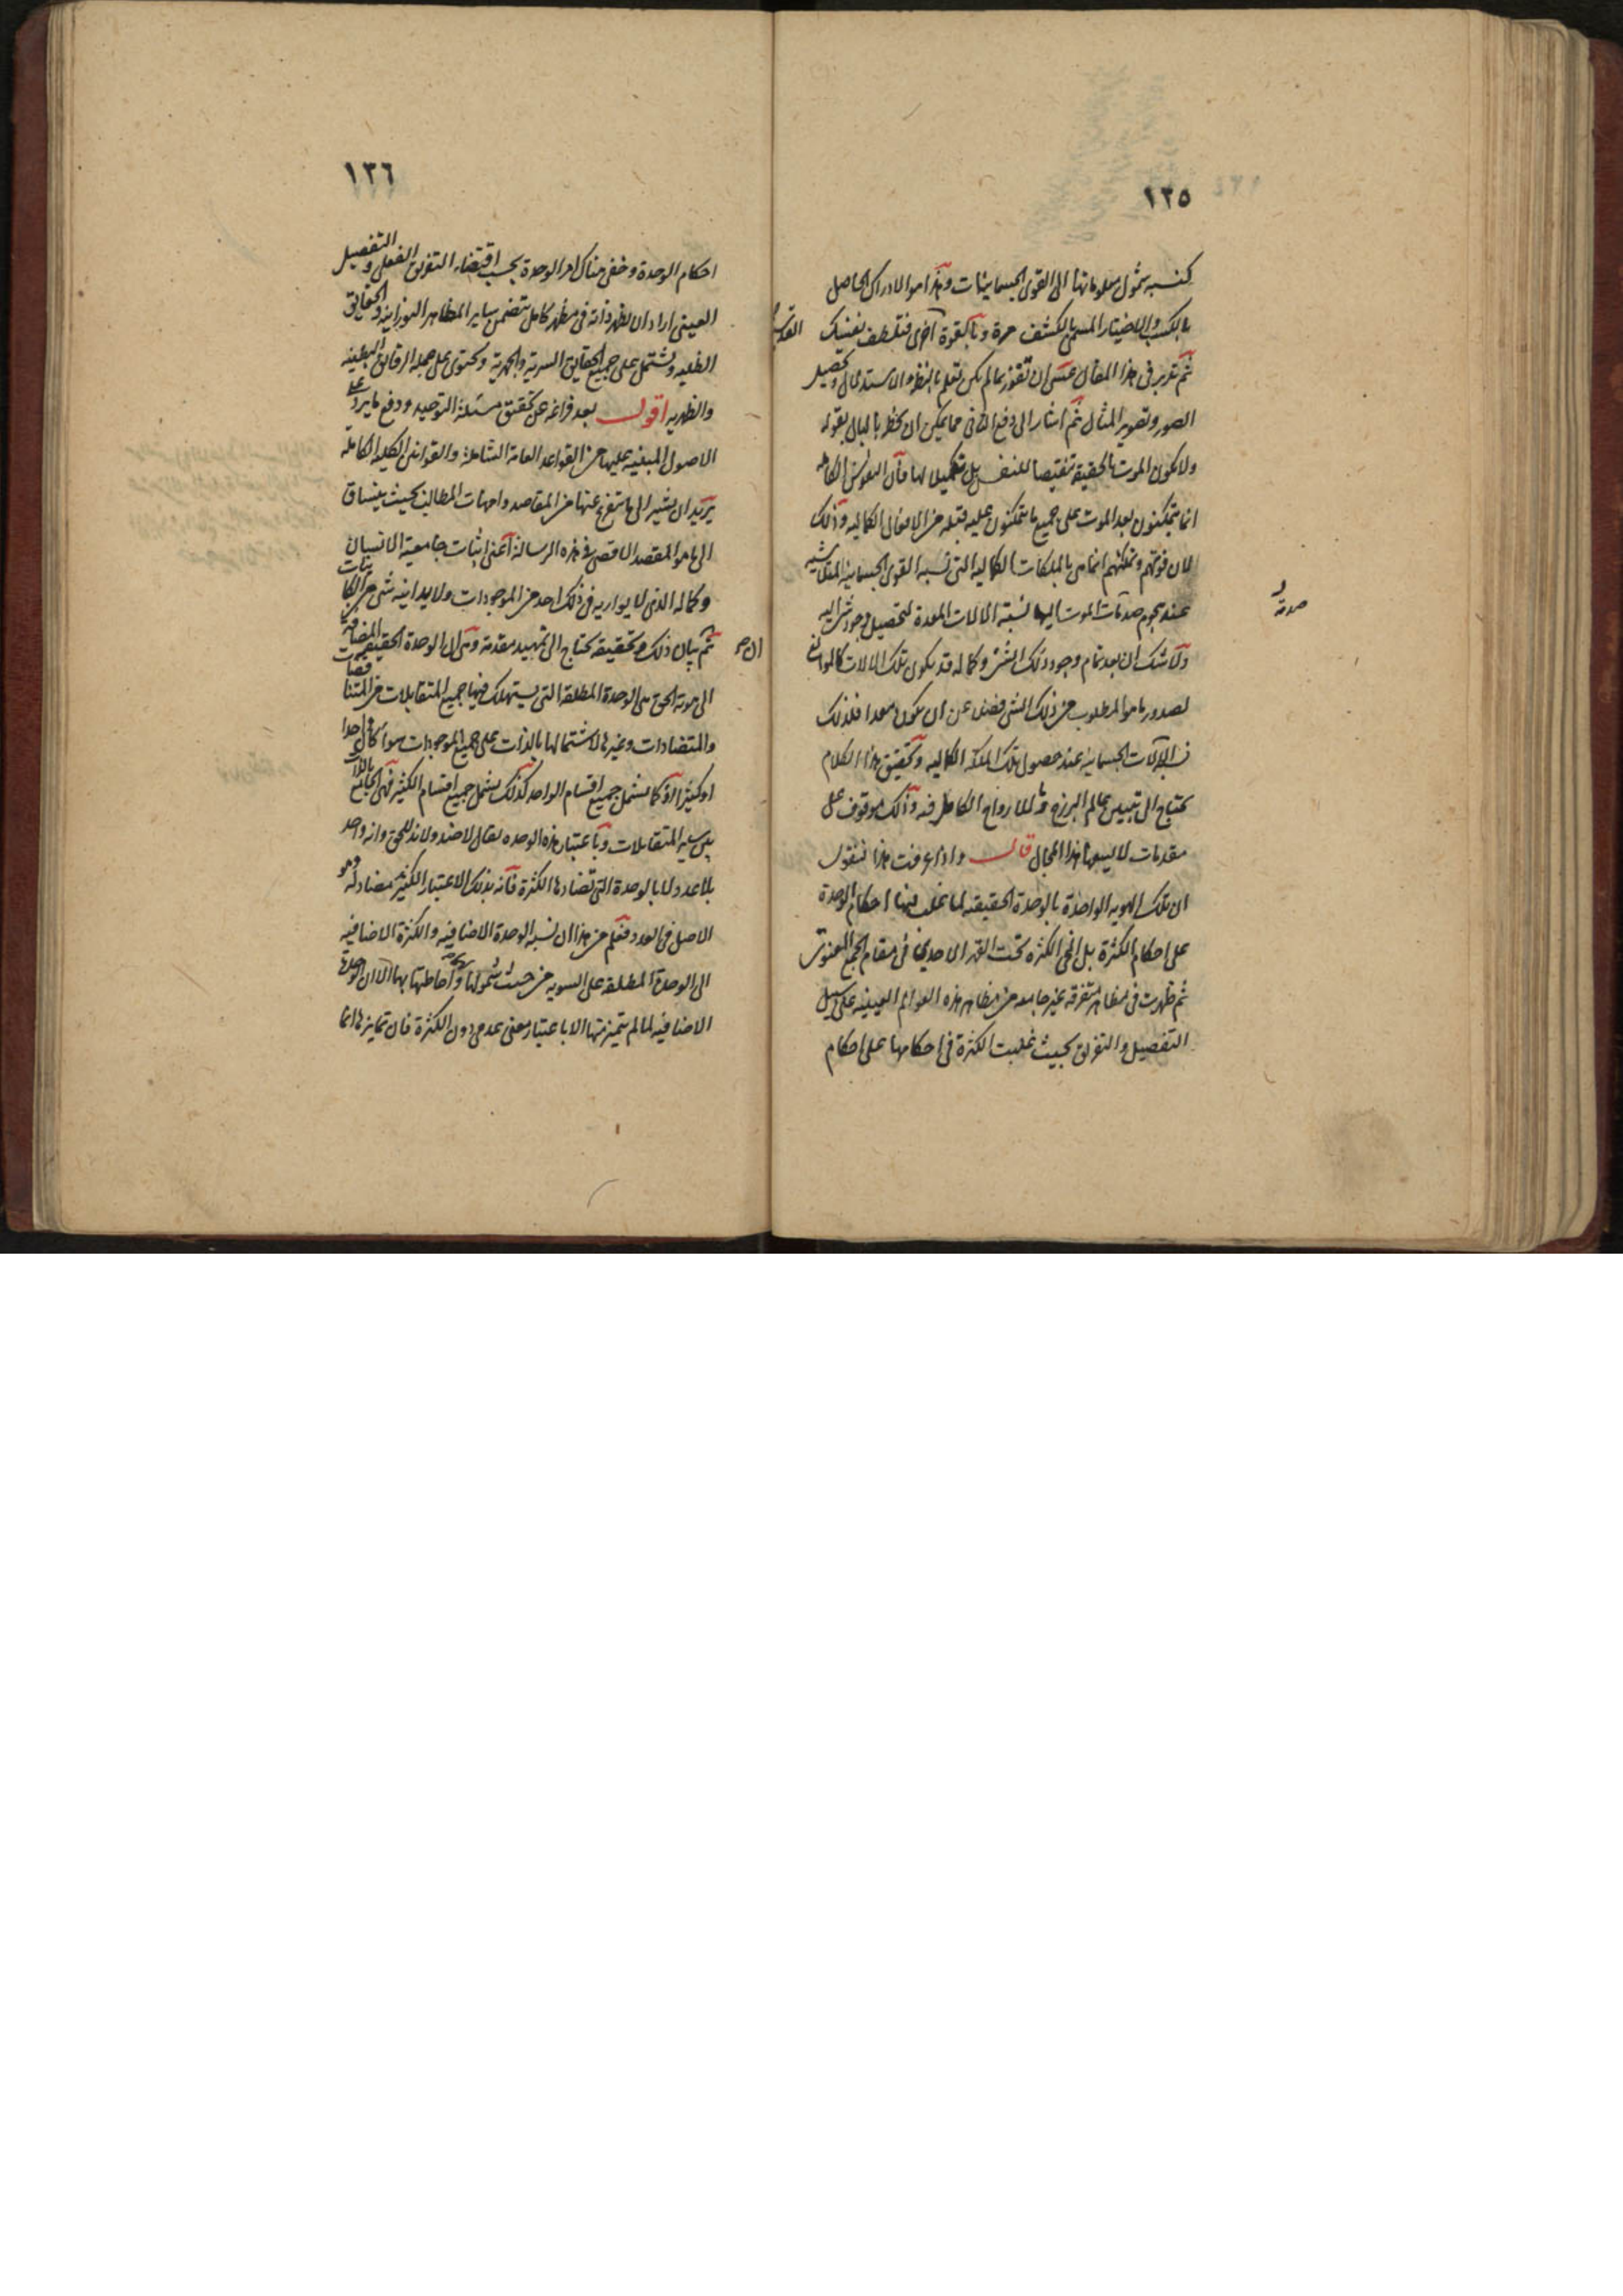 ١٣٥
كنسبة شمول معلوماتها الى القوى الجسمانيات وهذا هو الادراك الحاصل
بالكسب والاختيار المسمى بالكشف مرة وبالقوة اخرى فتلطف بنفسك
ثم تدبر فى هذا المقال عسى ان تفوز بما لم يكن تعلم بالنظر والاستدلال وتحصيل
الصور وتصوير المثال ثم اشار الى دفع الثانى مما يمكن ان يخطر بالبال بقوله
ولا يكون الموت بالحقيقة تنقيصا للنفس بل تكميلا لها فان النفوس الكاملة
انما يتمكنون بعد الموت على جميع ما يتمكنون عليه قبله من الافعال الكمالية وذلك
لان قوتهم وتمكنهم انما هى بالملكات الكمالية التى نسبة القوى الجسمانية المتلاشية
عند هجوم صدمات الموت اليها نسبة الالات المعدة لتحصيل وجود شئ اليه
ولا شك ان بعد تمام وجود ذلك الشئ وكماله قد يكون تلك الالات كالموانع
لصدور ما هو المطلوب من ذلك الشئ فضلا عن ان يكون معدا فلذلك
الالات الجسمانية عند حصول تلك الملكة الكمالية وتحقيق هذا الكلام
يحتاج الى تبيين عالم البرزخ وما للارواح الكاملة فيه وذلك موقوف على
مقدمات لا يسعها هذا المجال قال واذا عرفت هذا فنقول
ان تلك الهوية الواحدة بالوحدة الحقيقية لما غلب فيها احكام الوحدة
على احكام الكثرة بل انمحى الكثرة تحت القهر الاحدى فى مقام الجمع المعنوى
ثم ظهرت فى مظاهر متفرقة غير جامعة من مظاهر هذه العوالم العينية على سبيل
التفصيل والتفريق بحيث غلبت الكثرة فى احكامها على احكام
١٣٦
احكام الوحدة وخفى هناك امر الوحدة بحسب اقتضاء التفريق الفعلى والتفصيل
العينى اراد ان يظهر ذاته فى مظهر كامل يتضمن ساير المظاهر النورانية والحقايق
الظلية ويشتمل على جميع الحقايق السرية والجهرية ويحتوى على جملة الرقايق البطنية
والظهرية اقول بعد فراغه عن تحقيق مسئلة التوحيد ودفع ما يرد على
الاصول المبنية عليها من القواعد العامة الشاملة والقوانين الكلية الكاملة
يريد ان يشير الى ما يتفرع عنها من المقاصد وامهات المطالب بحيث ينساق
الى ما هو المقصد الاقصى فى هذه الرسالة اعنى اثبات جامعية الانسان
وكماله الذى لا يوازيه فى ذلك احد من الموجودات ولا يدانيه شئ من الكاينات
ثم بيان ذلك وتحقيقه يحتاج الى تمهيد مقدمة وهى ان الوحدة الحقيقية المضافة
الى هوية الحق هى الوحدة المطلقة التى يستهلك فيها جميع المتقابلات من المتناقضات
والمتضادات وغيرها لاشتمالها بالذات على جميع الموجودات سواء كان واحدا
او كثيرا اذ كما يشمل جميع اقسام الواحد كذلك يشمل جميع اقسام الكثير فهى الجامع بالذات
بين ساير المتقابلات وباعتبار هذه الوحدة يقال لا ضد ولا ند للحق وانه واحد
بلا عدد لا بالوحدة التى تضادها الكثرة فانه بذلك الاعتبار الكثير مضاد له وهو
الاصل فى العدد فعلم من هذا ان نسبة الوحدة الاضافية والكثرة الاضافية
الى الوحدة المطلقة على السوية من حيث شمولها واحاطتها بها الا ان الوحدة
الاضافية لما لم يتميز منها الا باعتبار معنى عدمى دون الكثرة فان تمايزها انما